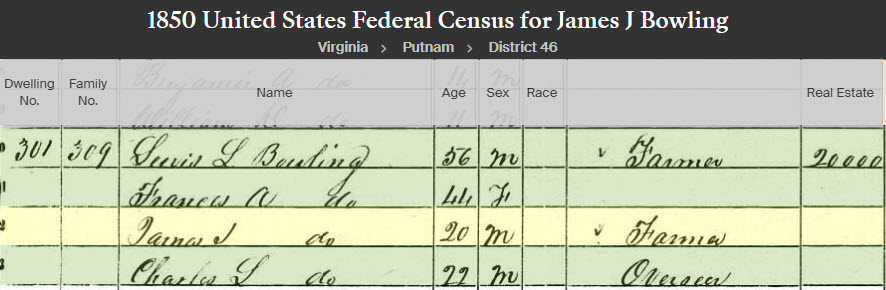 1850 United States Federal Census for James J Bowling
Virginia > Putnam > District 46
Dwelling No. Family No. Name Age Sex Race Real Estate
Benjamin A do 14 m
William do 11 m
301 309 Lewis L Bowling 56 m Farmer 20000
Frances A do 44 F
James J do 20 m Farmer
Charles L do 22 m Overseer